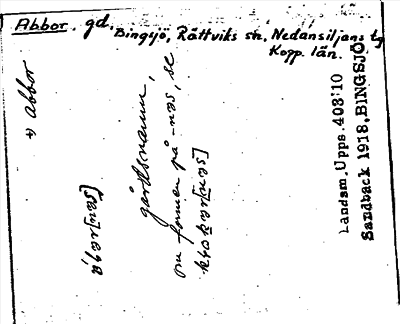 Abbor, gd.
Bingsjö, Rättviks sn, Nedansiljans tg
Kopp. län.
→ Abbor
gårdsnamn,
om formen på -nas, se
Landsm. Upps. 408:10
Sandback 1918. BINGSJÖ